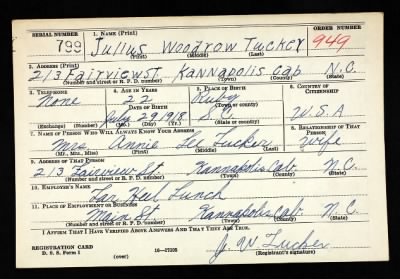 SERIAL NUMBER 1. NAME (Print) ORDER NUMBER
799 Julius Woodrow Tucker 949
(First) (Middle) (Last)
2. ADDRESS (Print)
213 Fairview St. Kannapolis Cab. N.C.
(Number and street or R. F. D. number) (Town) (County) (State)
3. TELEPHONE 4. AGE IN YEARS 5. PLACE OF BIRTH 6. COUNTRY OF CITIZENSHIP
None 22 Ruby
DATE OF BIRTH (Town or county)
July 29 1918 S.C. U.S.A
(Exchange) (Number) (Mo.) (Day) (Yr.) (State or country)
7. NAME OF PERSON WHO WILL ALWAYS KNOW YOUR ADDRESS 8. RELATIONSHIP OF THAT PERSON
Mrs. Annie Lee Tucker Wife
(Mr., Mrs., Miss) (First) (Middle) (Last)
9. ADDRESS OF THAT PERSON
213 Fairview St Kannapolis Cab. N.C.
(Number and street or R. F. D. number) (Town) (County) (State)
10. EMPLOYER'S NAME
Tar Heel Lunch
11. PLACE OF EMPLOYMENT OR BUSINESS
Main St. Kannapolis Cab N.C.
(Number and street or R. F. D. number) (Town) (County) (State)
I AFFIRM THAT I HAVE VERIFIED ABOVE ANSWERS AND THAT THEY ARE TRUE.
REGISTRATION CARD J. W. Tucker
D. S. S. Form 1 (over) 16—17105 (Registrant's signature)